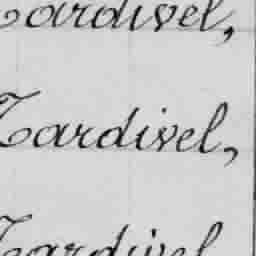 Tardivel,
Tardivel,
Tardivel